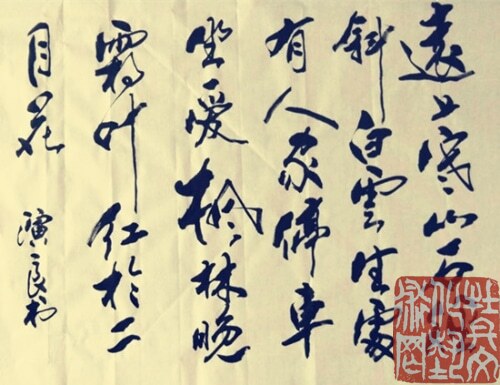 遠上寒山石徑
斜白雲生處
有人家停車
坐愛楓林晚
霜叶红於二
月花